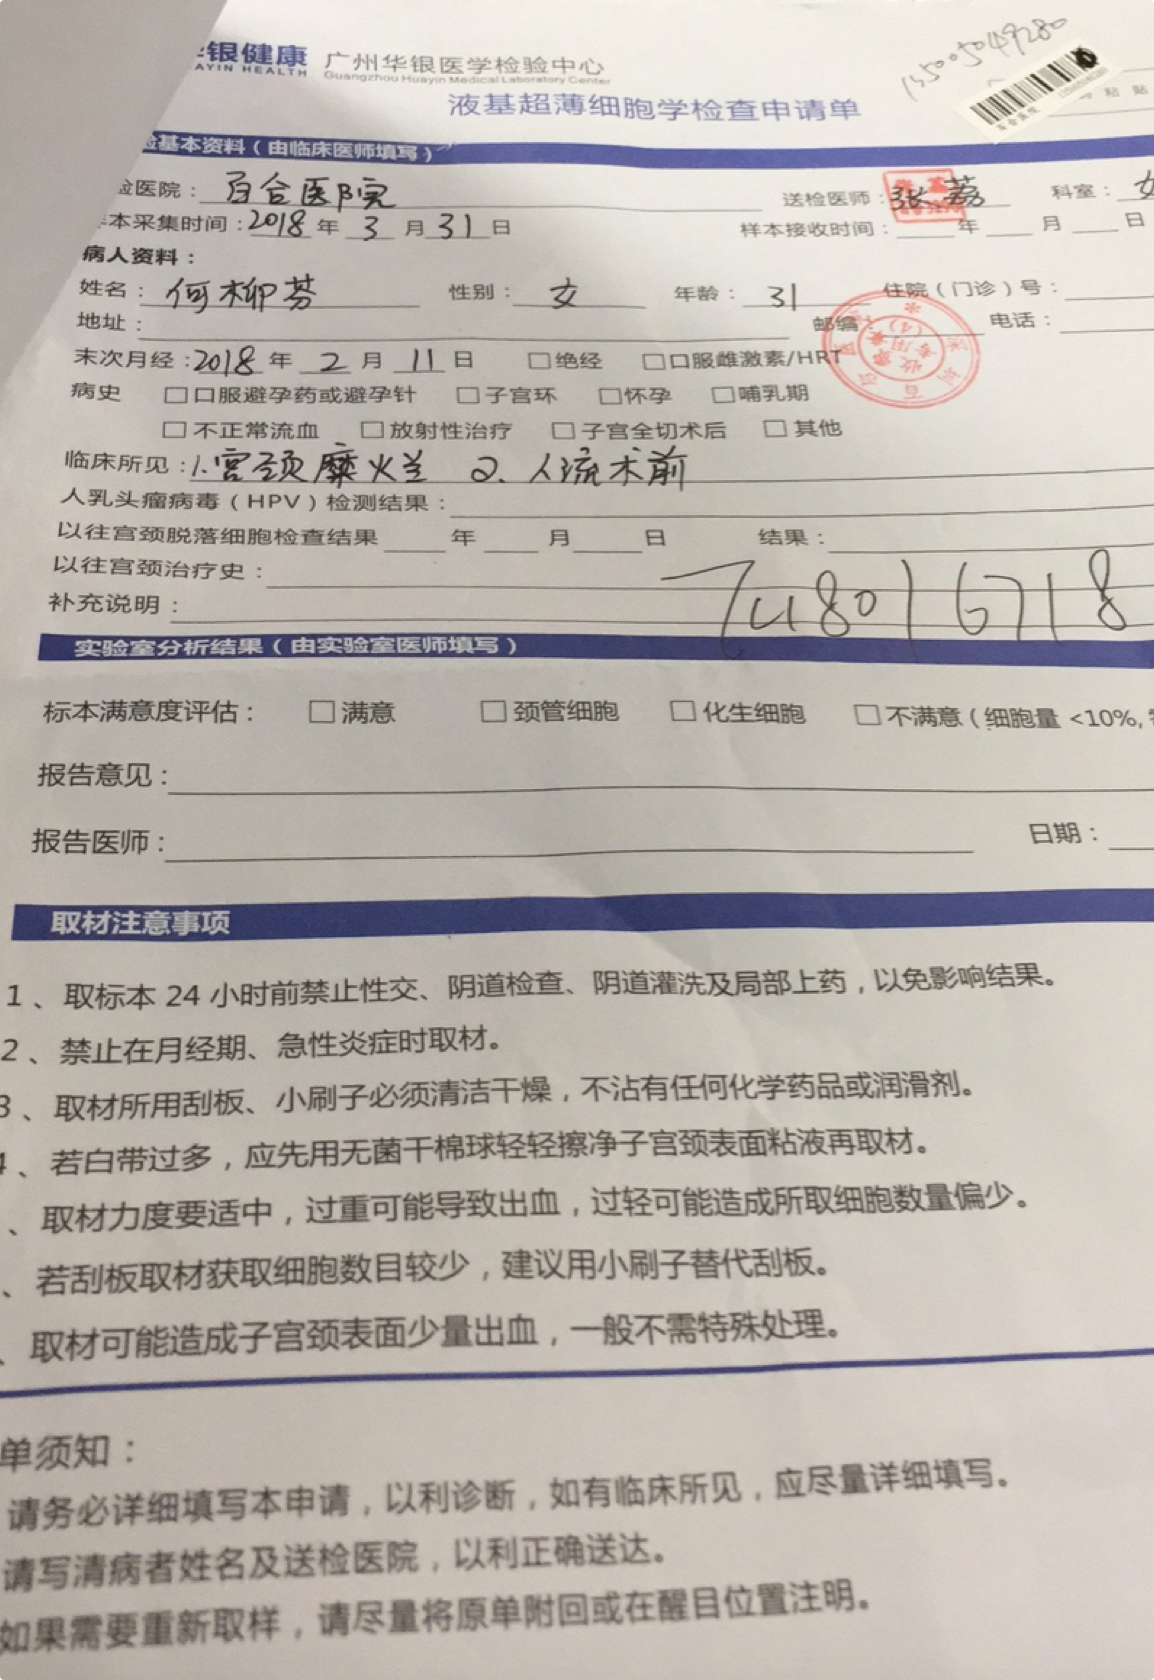 银健康 广州华银医学检验中心
AYIN HEALTH Guangzhou Huayin Medical Laboratory Center
液基超薄细胞学检查申请单
基本资料（由临床医师填写）
检医院：百合医院 送检医师： 科室：女
本采集时间：2018年3月31日 样本接收时间： 年 月 日
病人资料：
姓名：何柳芬 性别：女 年龄：31 住院（门诊）号：
地址： 邮编： 电话：
末次月经：2018年2月11日 □绝经 □口服雌激素/HRT
病史 □口服避孕药或避孕针 □子宫环 □怀孕 □哺乳期
□不正常流血 □放射性治疗 □子宫全切术后 □其他
临床所见：1.宫颈糜烂 2、人流术前
人乳头瘤病毒（HPV）检测结果：
以往宫颈脱落细胞检查结果 年 月 日 结果：
以往宫颈治疗史：
补充说明：
748016718
实验室分析结果（由实验室医师填写）
标本满意度评估： □满意 □颈管细胞 □化生细胞 □不满意（细胞量 <10%,
报告意见：
报告医师： 日期：
取材注意事项
1、取标本 24 小时前禁止性交、阴道检查、阴道灌洗及局部上药，以免影响结果。
2、禁止在月经期、急性炎症时取材。
3、取材所用刮板、小刷子必须清洁干燥，不沾有任何化学药品或润滑剂。
4、若白带过多，应先用无菌干棉球轻轻擦净子宫颈表面粘液再取材。
、取材力度要适中，过重可能导致出血，过轻可能造成所取细胞数量偏少。
、若刮板取材获取细胞数目较少，建议用小刷子替代刮板。
、取材可能造成子宫颈表面少量出血，一般不需特殊处理。
单须知：
请务必详细填写本申请，以利诊断，如有临床所见，应尽量详细填写。
请写清病者姓名及送检医院，以利正确送达。
如果需要重新取样，请尽量将原单附回或在醒目位置注明。